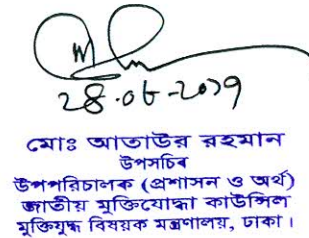 28.06-2019
মোঃ আতাউর রহমান
উপসচিব
উপপরিচালক (প্রশাসন ও অর্থ)
জাতীয় মুক্তিযোদ্ধা কাউন্সিল
মুক্তিযুদ্ধ বিষয়ক মন্ত্রণালয়, ঢাকা।